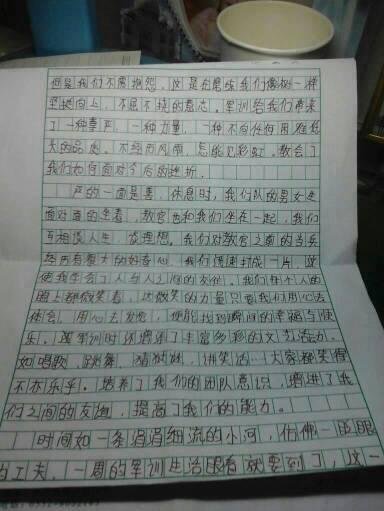 但是我们不需抱怨，这是在磨练我们像树一样
坚挺向上，不屈不挠的意志。军训给我们带来
了一种尊严，一种力量，一种不向任何困难低
头的品质。不经历风雨，怎能见彩虹。教会了
我们如何面对今后的挫折。
严的一面是喜，休息时，我们队的男女是
面对面的坐着，教官也和我们坐在一起，我们
互相谈人生，谈理想。我们对教官之前的当兵
经历有着大的好奇心，我们很快打成一片，这
使我学会了人与人之间的友谊。我们每个人的
脸上都微笑着，这微笑的力量只要我们用心去
体会，用心去发觉，便能找到瞬间的幸福与快
乐。现军训时还增添了丰富多彩的文艺活动。
如唱歌，跳舞，猜谜语，讲笑话…大家都笑得
不亦乐乎。培养了我们的团队意识，增进了我
们之间的友谊，提高了我们的能力。
时间如一条涓涓细流的小河，仿佛一眨眼
的工夫，一周的军训生活眼看就要到了，这一